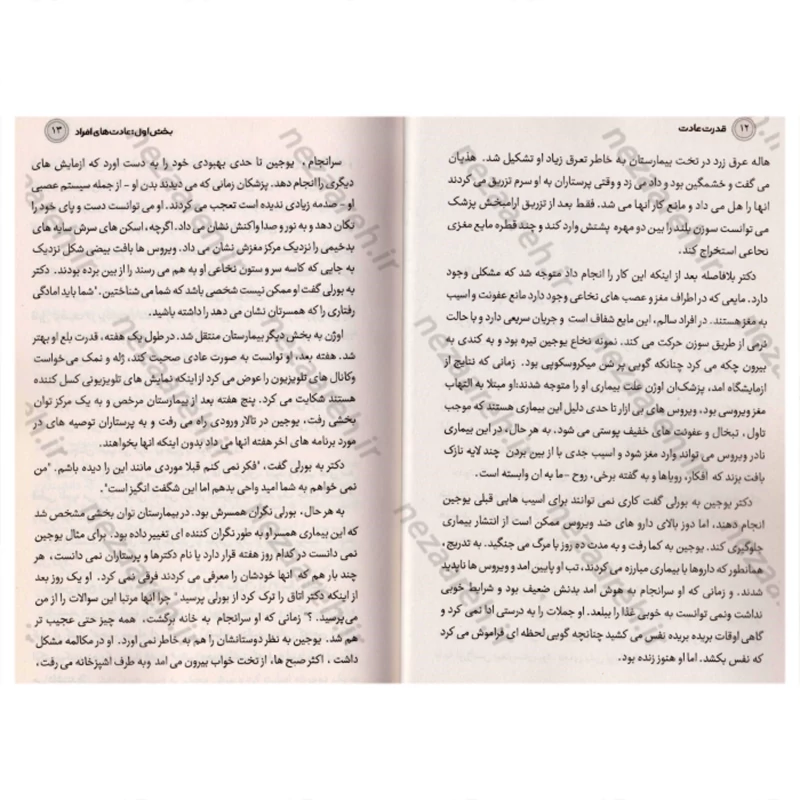 ۱۲ قدرت عادت
هاله عرق زرد در تخت بیمارستان به خاطر تعرق زیاد او تشکیل شد. هذیان
می گفت و خشمگین بود و داد می زد و وقتی پرستاران به او سرم تزریق می کردند
انها را هل می داد و مانع کار انها می شد. فقط بعد از تزریق ارامبخش پزشک
می توانست سوزن بلند را بین دو مهره پشتش وارد کند و چند قطره مایع مغزی
نخاعی استخراج کند.
دکتر بلافاصله بعد از اینکه این کار را انجام داد متوجه شد که مشکلی وجود
دارد. مایعی که در اطراف مغز و عصب های نخاعی وجود دارد مانع عفونت و اسیب
به مغز هستند. در افراد سالم، این مایع شفاف است و جریان سریعی دارد و با حالت
نرمی از طریق سوزن حرکت می کند. نمونه نخاع یوجین تیره بود و به کندی به
بیرون چکه می کرد چنانکه گویی پر شن میکروسکوپی بود. زمانی که نتایج از
ازمایشگاه امد، پزشک‌ان اوژن علت بیماری او را متوجه شدند:او مبتلا به التهاب
مغز ویروسی بود، ویروس های بی ازار تا حدی دلیل این بیماری هستند که موجب
تاول، تبخال و عفونت های خفیف پوستی می شود. به هر حال، در این بیماری
نادر ویروس می تواند وارد مغز شود و اسیب جدی با از بین بردن چند لایه نازک
بافت بزند که افکار، رویاها و به گفته برخی، روح -ما به ان وابسته است.
دکتر یوجین به بورلی گفت کاری نمی توانند برای اسیب هایی قبلی یوجین
انجام دهند، اما دوز بالای دارو های ضد ویروس ممکن است از انتشار بیماری
جلوگیری کند. یوجین به کما رفت و به مدت ده روز با مرگ می جنگید. به تدریج،
همانطور که داروها با بیماری مبارزه می کردند، تب او پایین امد و ویروس ها ناپدید
شدند. و زمانی که او سرانجام به هوش امد بدنش ضعیف بود و شرایط خوبی
نداشت ونمی توانست به خوبی غذا را ببلعد. او جملات را به درستی ادا نمی کرد و
گاهی اوقات بریده بریده نفس می کشید چنانچه گویی لحظه ای فراموش می کرد
که نفس بکشد. اما او هنوز زنده بود.
بخش اول: عادت های افراد ۱۳
سرانجام، یوجین تا حدی بهبودی خود را به دست اورد که ازمایش های
دیگری را انجام دهد. پزشکان زمانی که می دیدند بدن او - از جمله سیستم عصبی
او - صدمه زیادی ندیده است تعجب می کردند. او می توانست دست و پای خود را
تکان دهد و به نور و صدا واکنش نشان می داد. اگرچه، اسکن های سرش سایه های
بدخیمی را نزدیک مرکز مغزش نشان می داد. ویروس ها بافت بیضی شکل نزدیک
به جایی که کاسه سر و ستون نخاعی او به هم می رسند را از بین برده بودند. دکتر
به بورلی گفت او ممکن نیست شخصی باشد که شما می شناختین. "شما باید امادگی
رفتاری را که همسرتان نشان می دهد را داشته باشید.
اوژن به بخش دیگر بیمارستان منتقل شد. در طول یک هفته، قدرت بلع او بهتر
شد. هفته بعد، او توانست به صورت عادی صحبت کند، ژله و نمک می خواست
وکانال های تلویزیون را عوض می کرد از اینکه نمایش های تلویزیونی کسل کننده
هستند شکایت می کرد. پنج هفته بعد از بیمارستان مرخص و به یک مرکز توان
بخشی رفت، یوجین در تالار ورودی راه می رفت و به پرستاران توصیه های در
مورد برنامه های اخر هفته انها می داد بدون اینکه انها بخواهند.
دکتر به بورلی گفت، "فکر نمی کنم قبلا موردی مانند این را دیده باشم. "من
نمی خواهم به شما امید واحی بدهم اما این شگفت انگیز است".
به هر حال، بورلی نگران همسرش بود. در بیمارستان توان بخشی مشخص شد
که این بیماری همسر او به طور نگران کننده ای تغییر داده بود. برای مثال یوجین
نمی دانست در کدام روز هفته قرار دارد یا نام دکترها و پرستاران نمی دانست، هر
چند بار هم که انها خودشان را معرفی می کردند فرقی نمی کرد. او یک روز بعد
از اینکه دکتر اتاق را ترک کرد از بورلی پرسید " چرا انها مرتبا این سوالات را از من
می پرسید. ؟" زمانی که او سرانجام به خانه برگشت، همه چیز حتی عجیب تر
هم شد. یوجین به نظر دوستانشان را هم به خاطر نمی اورد. او در مکالمه مشکل
داشت ، اکثر صبح ها، از تخت خواب بیرون می امد وبه طرف اشپزخانه می رفت،
nezaareh.ir